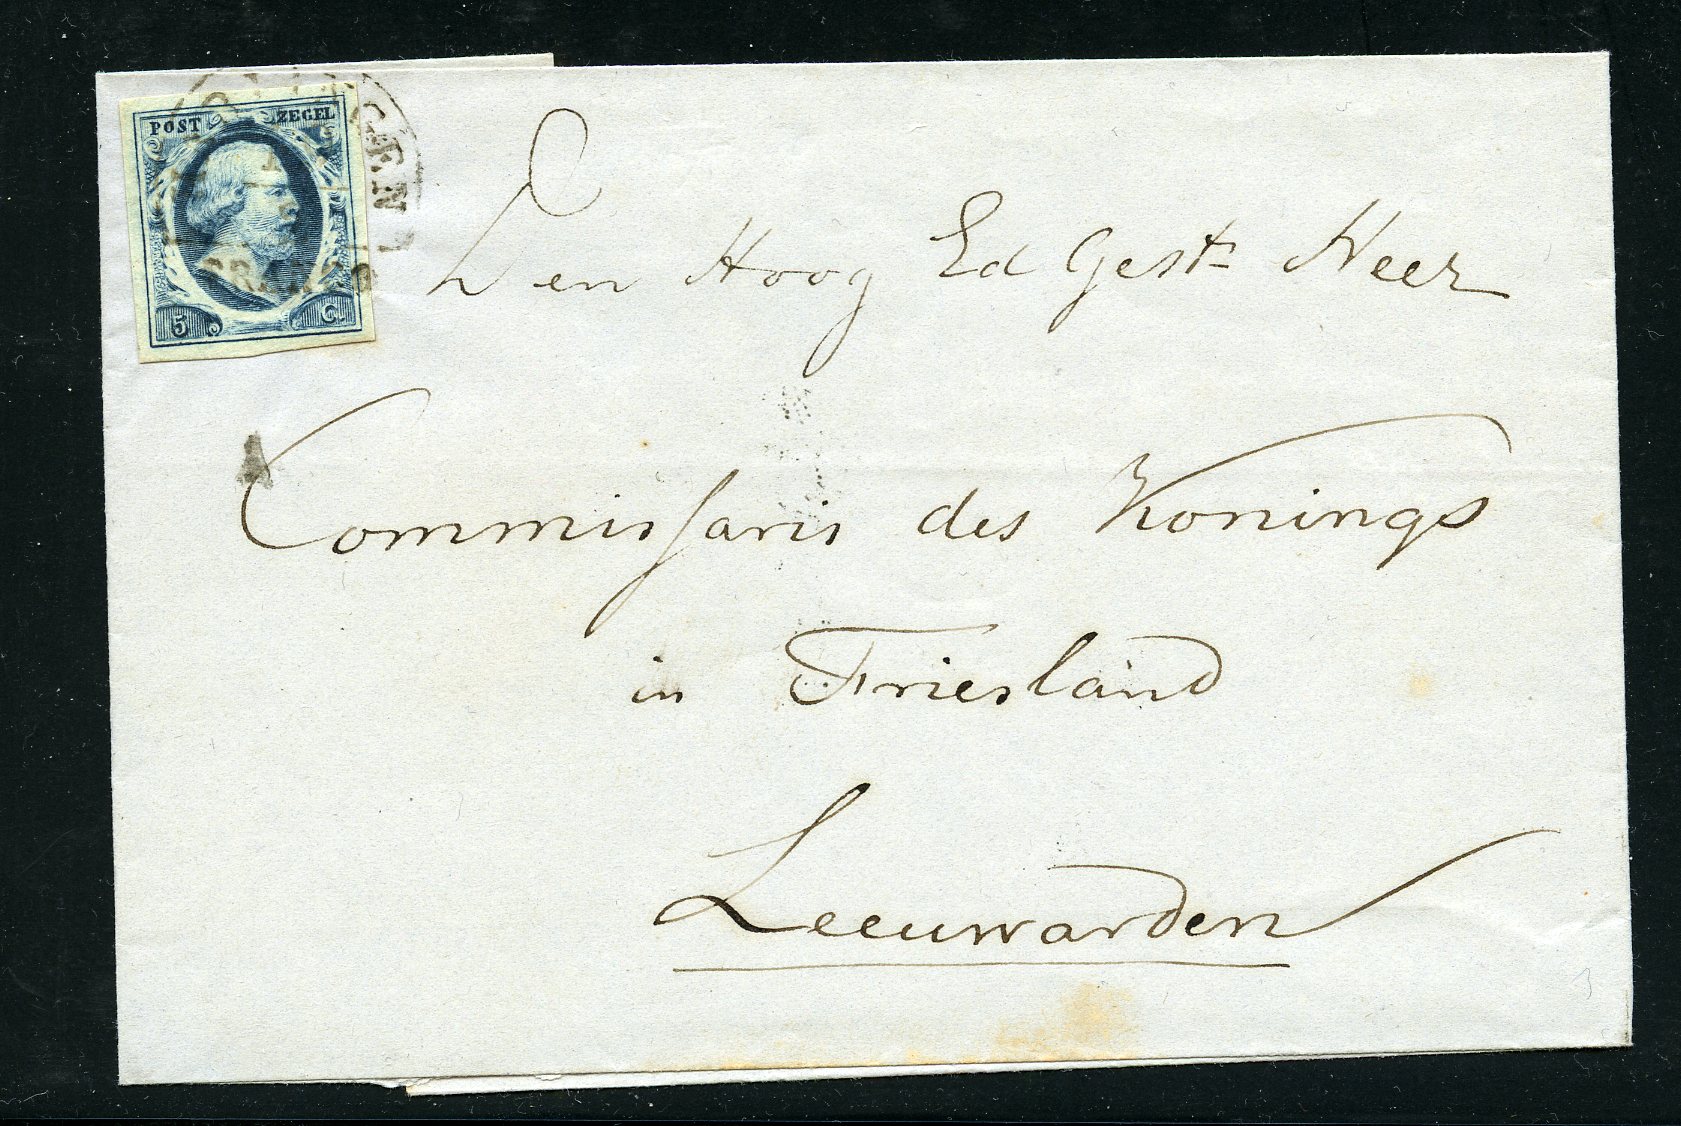 POST ZEGEL
5 C.
FRANCO
Den Hoog Ed Gestr Heer
Commissaris des Konings
in Friesland
Leeuwarden